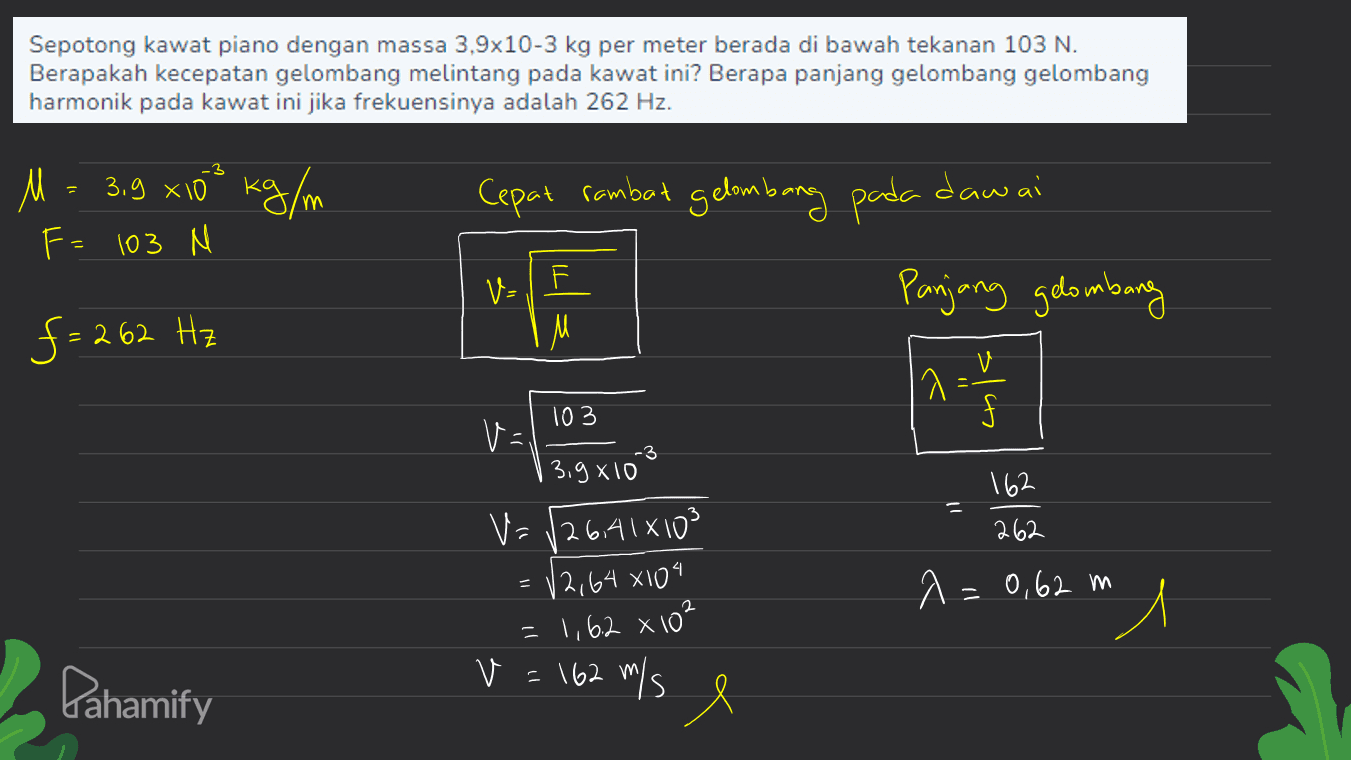 Sepotong kawat piano dengan massa 3,9x10-3 kg per meter berada di bawah tekanan 103 N.
Berapakah kecepatan gelombang melintang pada kawat ini? Berapa panjang gelombang gelombang
harmonik pada kawat ini jika frekuensinya adalah 262 Hz.
M = 3,9 x10⁻³ kg/m
F = 103 N
f = 262 Hz
Cepat rambat gelombang pada dawai
V = √(F/M)
V = √(103/3,9 x 10⁻³)
V = √26,41 x 10³
= √2,64 x10⁴
= 1,62 x 10²
V = 162 m/s
Panjang gelombang
λ = v/f
= 162/262
λ = 0,62 m
Pahamify